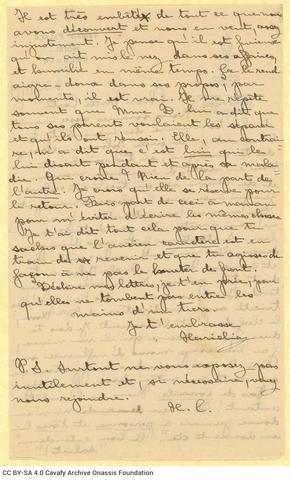 Il est très embêté de tout ce que nous
avons découvert et nous en veut, assez
injustement. Je pense qu'il est furieux
qu'on ait mis le nez dans ses affaires,
et humilié en même temps. Ça le rend
aigre-doux dans ses propos, par
moments, il est vrai. Il me répète
souvent que Mme D. lui a dit que
tous ses parents voulaient les séparer
et qu'ils ont réussi. Elle, au contrai-
re, m'a dit que c'est lui qui le
lui disait pendant et après sa mala-
die. Que croire? Rien de la part de
l'autre. Je crois qu'elle se réserve pour
le retour. Fais part de ceci à maman
pour m'éviter d'écrire les mêmes choses.
Je t'ai dit tout cela pour que tu
saches que l'ancien caractère est en
train de revenir et que tu agisses de
façon à ne pas le heurter de front.
Déchire mes lettres, je t'en prie, pour
qu'elles ne tombent pas entre les
mains d'un tiers.
Je t'embrasse
Hariclia
P.S. Surtout ne vous exposez pas
inutilement et, si nécessaire, venez
nous rejoindre.
H. C.
CC BY-SA 4.0 Cavafy Archive Onassis Foundation